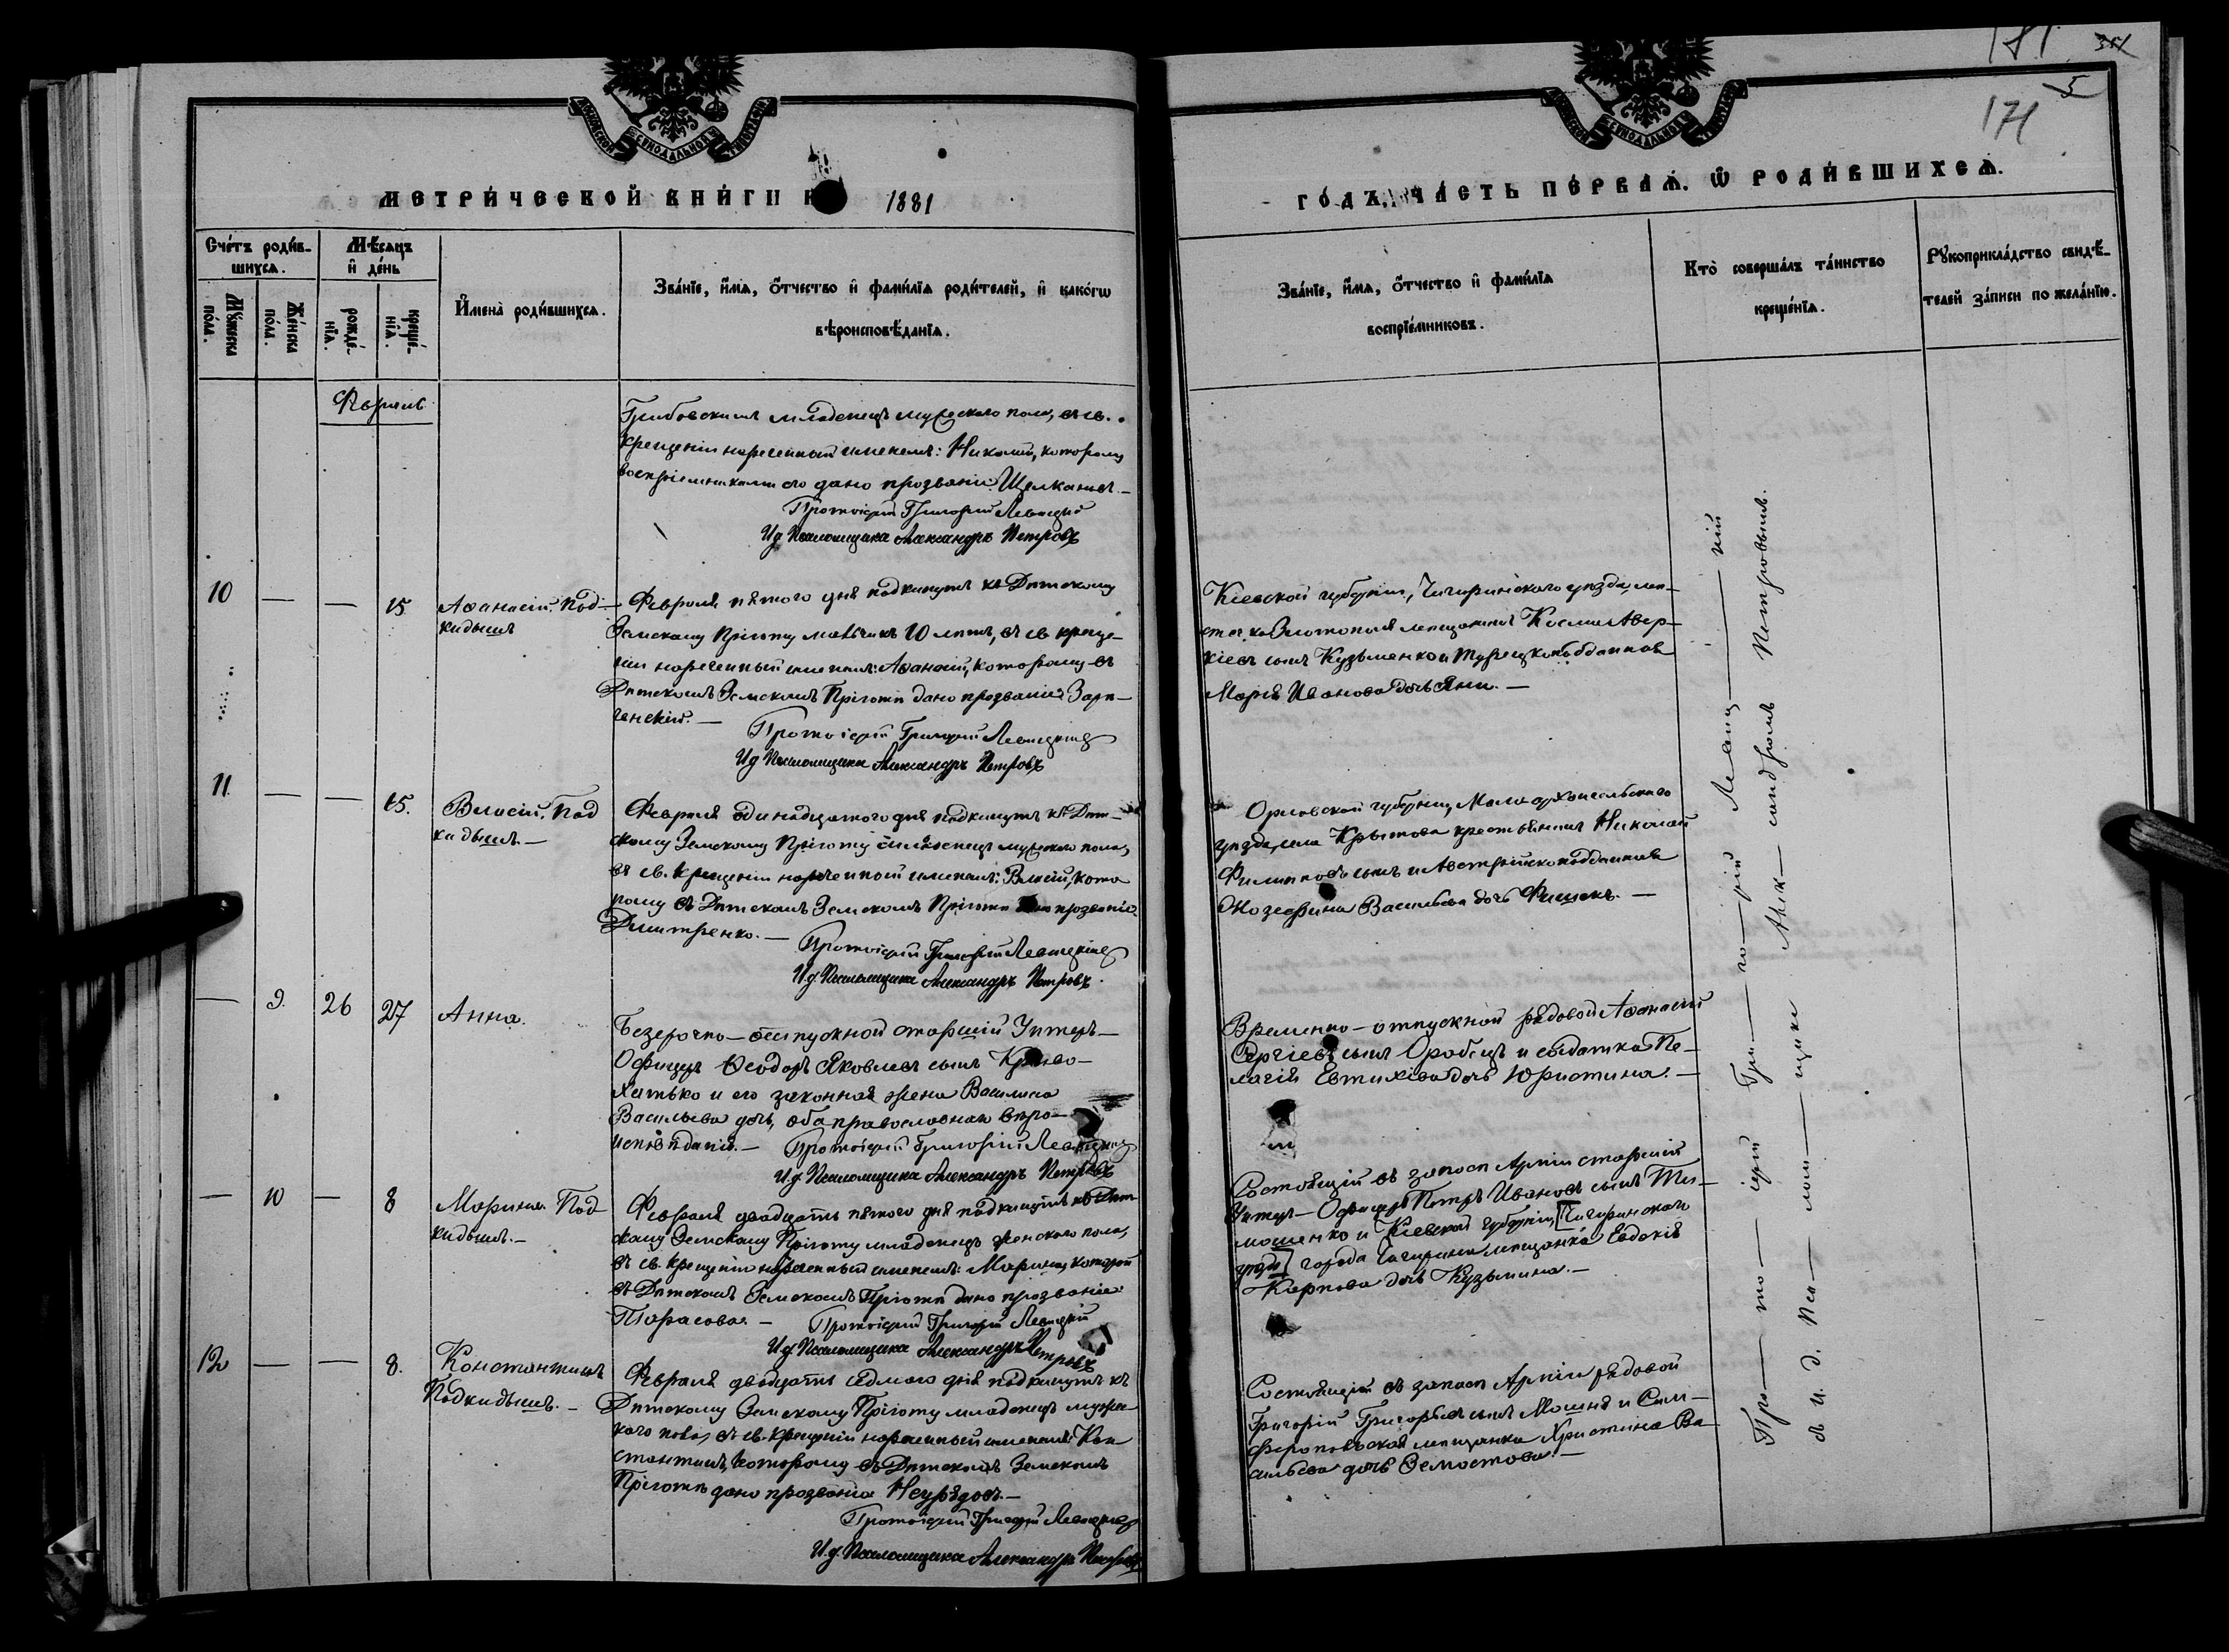 181
5
171
МЕТРИЧЕСКОЙ КНИГИ
1881
ГОДЪ, ЧАСТЬ ПЕРВАЯ. Ѿ РОДИВШИХСЯ.
Счетъ родив-
шихся.
Мужеска
пола.
Женска
пола.
Мѣсяцъ
и день
рожде-
нія.
креще-
нія.
Имена родившихся.
Званіе, имя, отчество и фамилія родителей, и какогѡ
вѣроисповѣданія.
Званіе, имя, отчество и фамилія
воспріемниковъ.
Кто совершалъ таинство
крещенія.
Рукоприкладство свидѣ-
телей записи по желанію.
Февраль
младенецъ мужескаго пола, въ св.
крещеніи нареченный именемъ: Николай, которому
воспріемниками его дано прозваніе
Протоіерей Григорій Левицкій
И д Псаломщика Александръ Петровъ
10 — — 15
Аѳанасій. Под-
кидышъ
Февраля пятого дня подкинутъ къ Дѣтскому
Земскому Пріюту мальчикъ 10 лѣтъ, въ св креще-
ніи нареченный именемъ: Аѳанасій, которому въ
Дѣтскомъ Земскомъ Пріютѣ дано прозваніе Заре-
ченскій.—
Протоіерей Григорій Левицкій
И д Псаломщика Александръ Петровъ
Кіевской губерніи, Чигиринского уѣзда, мѣ-
стечка Златополя мѣщанинъ Косма Авер-
кіевъ сынъ Кузьменко и Турецкоподданная
Марія Иванова дочь Яни.—
11. — — 15.
Власій. Под
кидышъ.—
Февраля одинадцатого дня подкинутъ къ Дѣт-
скому Земскому Пріюту младенецъ мужескаго пола,
въ св. крещеніи нареченной именемъ: Власій, кото
рому въ Дѣтскомъ Земскомъ Пріютѣ дано прозваніе
Дмитренко.—
Протоіерей Григорій Левицкій
И.д. Псаломщика Александръ Петровъ.
Орловской губерніи, Мало-архангельского
уѣзда, села крестьянинъ Николай
Филиповъ сынъ и Австрійскоподданная
Жозефина Васильева дочь Фишекъ.—
— 9. 26 27
Анна.
Безсрочно-отпускной старшій Унтеръ-
Офицеръ Ѳеодоръ Яковлевъ сынъ Криво-
хатько и его законная жена Василиса
Васильева дочь, оба православнаго вѣро-
исповѣданія.— Протоіерей Григорій Левицкій
И.д. Псаломщика Александръ Петровъ
Временно-отпускной рядовой Аѳанасій
Сергіевъ сынъ Оробецъ и солдатка Пе-
лагія Евтихіева дочь Юристина.—
— 10 — 8
Марина. Под-
кидышъ.—
Февраля двадцать пятого дня подкинутъ къ Дѣт-
скому Земскому Пріюту младенецъ женского пола,
въ св. крещеніи нареченный именемъ: Марина, которой
въ Дѣтскомъ Земскомъ Пріютѣ дано прозваніе
Тарасова.— Протоіерей Григорій Левицкій
И.д. Псаломщика Александръ Петровъ
Состоящій въ запасѣ Арміи старшій
Унтеръ-Офицеръ Петръ Ивановъ сынъ Ти-
мошенко и Кіевской губерніи, [Чигиринского
уѣзда] города Чигирина мѣщанка Евдокія
Карпова дочь Кузьмина.—
12 — — 8.
Константинъ
Подкидышъ.—
Февраля двадцать седмого дня подкинутъ къ
Дѣтскому Земскому Пріюту младенецъ мужес
кого пола, въ св. крещеніи нареченный именемъ: Кон
стантинъ, которому въ Дѣтскомъ Земскомъ
Пріютѣ дано прозваніе Неурядовъ.—
Протоіерей Григорій Левицкій
И.д. Псаломщика Александръ Петровъ
Состоящій въ запасѣ Арміи рядовой
Григорій Григорьевъ сынъ Мошня и Сим-
феропольская мѣщанка Христина Ва
сильева дочь
Про— то— іерей Гри— го— рій Левиц— кій
съ и. д. Пса— лом— щика Алек— сандромъ Петровымъ.